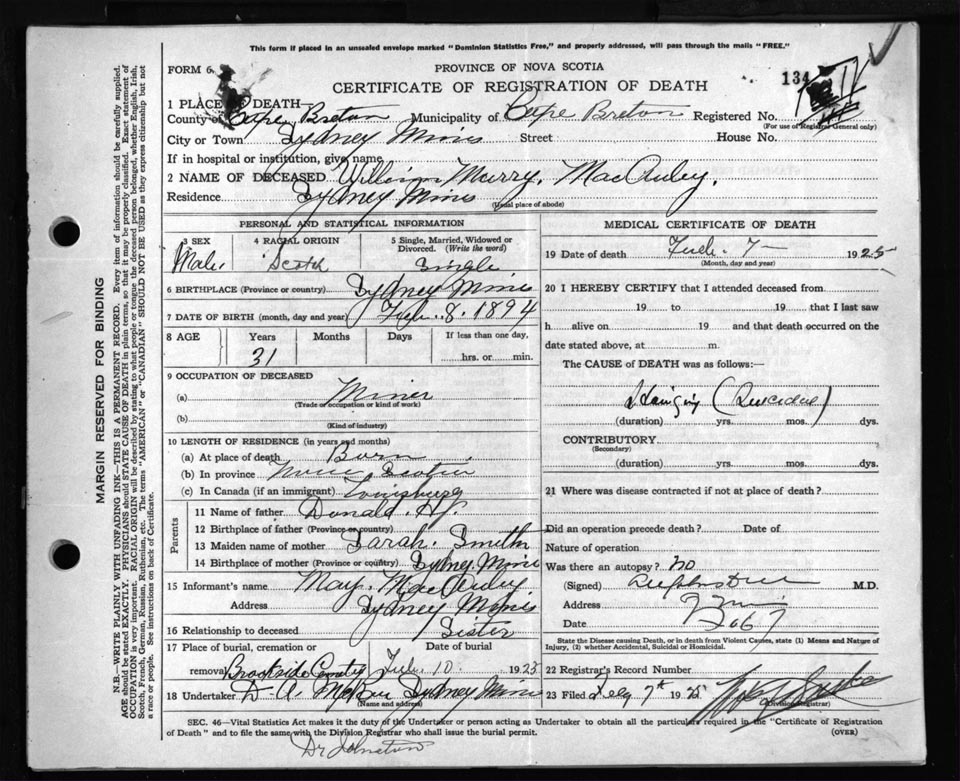 This form if placed in an unsealed envelope marked "Dominion Statistics Free," and properly addressed, will pass through the mails "FREE."
FORM 6
PROVINCE OF NOVA SCOTIA
CERTIFICATE OF REGISTRATION OF DEATH
134
1 PLACE OF DEATH—
County of Cape Breton Municipality of Cape Breton Registered No.
(For use of Registrar General only)
City or Town Sydney Mines Street House No.
If in hospital or institution, give name
2 NAME OF DECEASED William Murry. MacAuley.
Residence Sydney Mines
(Usual place of abode)
PERSONAL AND STATISTICAL INFORMATION
3 SEX 4 RACIAL ORIGIN 5 Single, Married, Widowed or Divorced. (Write the word)
Male. Scotch Single
6 BIRTHPLACE (Province or country) Sydney Mines
7 DATE OF BIRTH (month, day and year) Feb. 8. 1894
8 AGE Years Months Days If less than one day,
31 hrs. or min.
9 OCCUPATION OF DECEASED
(a) Miner
(Trade or occupation or kind of work)
(b)
(Kind of industry)
10 LENGTH OF RESIDENCE (in years and months)
(a) At place of death Born
(b) In province Nova Scotia
(c) In Canada (if an immigrant) Louisburg
Parents
11 Name of father Donald. H.
12 Birthplace of father (Province or country)
13 Maiden name of mother Sarah. Smith
14 Birthplace of mother (Province or country) Sydney Mines
15 Informant's name May. MacAuley
Address Sydney Mines
16 Relationship to deceased Sister
17 Place of burial, cremation or removal Date of burial
Brookside Cemetry Feb. 10. 1925
18 Undertaker D. A. Sydney Mines
(Name and address)
MEDICAL CERTIFICATE OF DEATH
19 Date of death Feb. 7— 1925
(Month, day and year)
20 I HEREBY CERTIFY that I attended deceased from
19 to 19 that I last saw
h alive on 19 and that death occurred on the
date stated above, at m.
The CAUSE of DEATH was as follows:—
Hanging (Suicidal)
(duration) yrs. mos. dys.
CONTRIBUTORY
(Secondary)
(duration) yrs. mos. dys.
21 Where was disease contracted if not at place of death?
Did an operation precede death? Date of
Nature of operation
Was there an autopsy? no
(Signed) M.D.
Address
Date
State the Disease causing Death, or in death from Violent Causes, state (1) Means and Nature of Injury, (2) whether Accidental, Suicidal or Homicidal.
22 Registrar's Record Number
23 Filed Feby 7th 1925
(Division Registrar)
SEC. 46—Vital Statistics Act makes it the duty of the Undertaker or person acting as Undertaker to obtain all the particulars required in the "Certificate of Registration
of Death" and to file the same with the Division Registrar who shall issue the burial permit. (OVER)
Dr Johnston
MARGIN RESERVED FOR BINDING
N.B.—WRITE PLAINLY WITH UNFADING INK—THIS IS A PERMANENT RECORD. Every item of information should be carefully supplied.
AGE should be stated EXACTLY. PHYSICIANS should STATE CAUSE OF DEATH in plain terms, so that it may be properly classified. Exact statement of
OCCUPATION is very important. RACIAL ORIGIN will be described by stating to what people or tongue the deceased person belonged, whether English, Irish,
Scotch, French, German, Russian, Ruthenian, etc. The terms "AMERICAN" or "CANADIAN" SHOULD NOT BE USED as they express citizenship but not
a race or people. See instructions on back of Certificate.